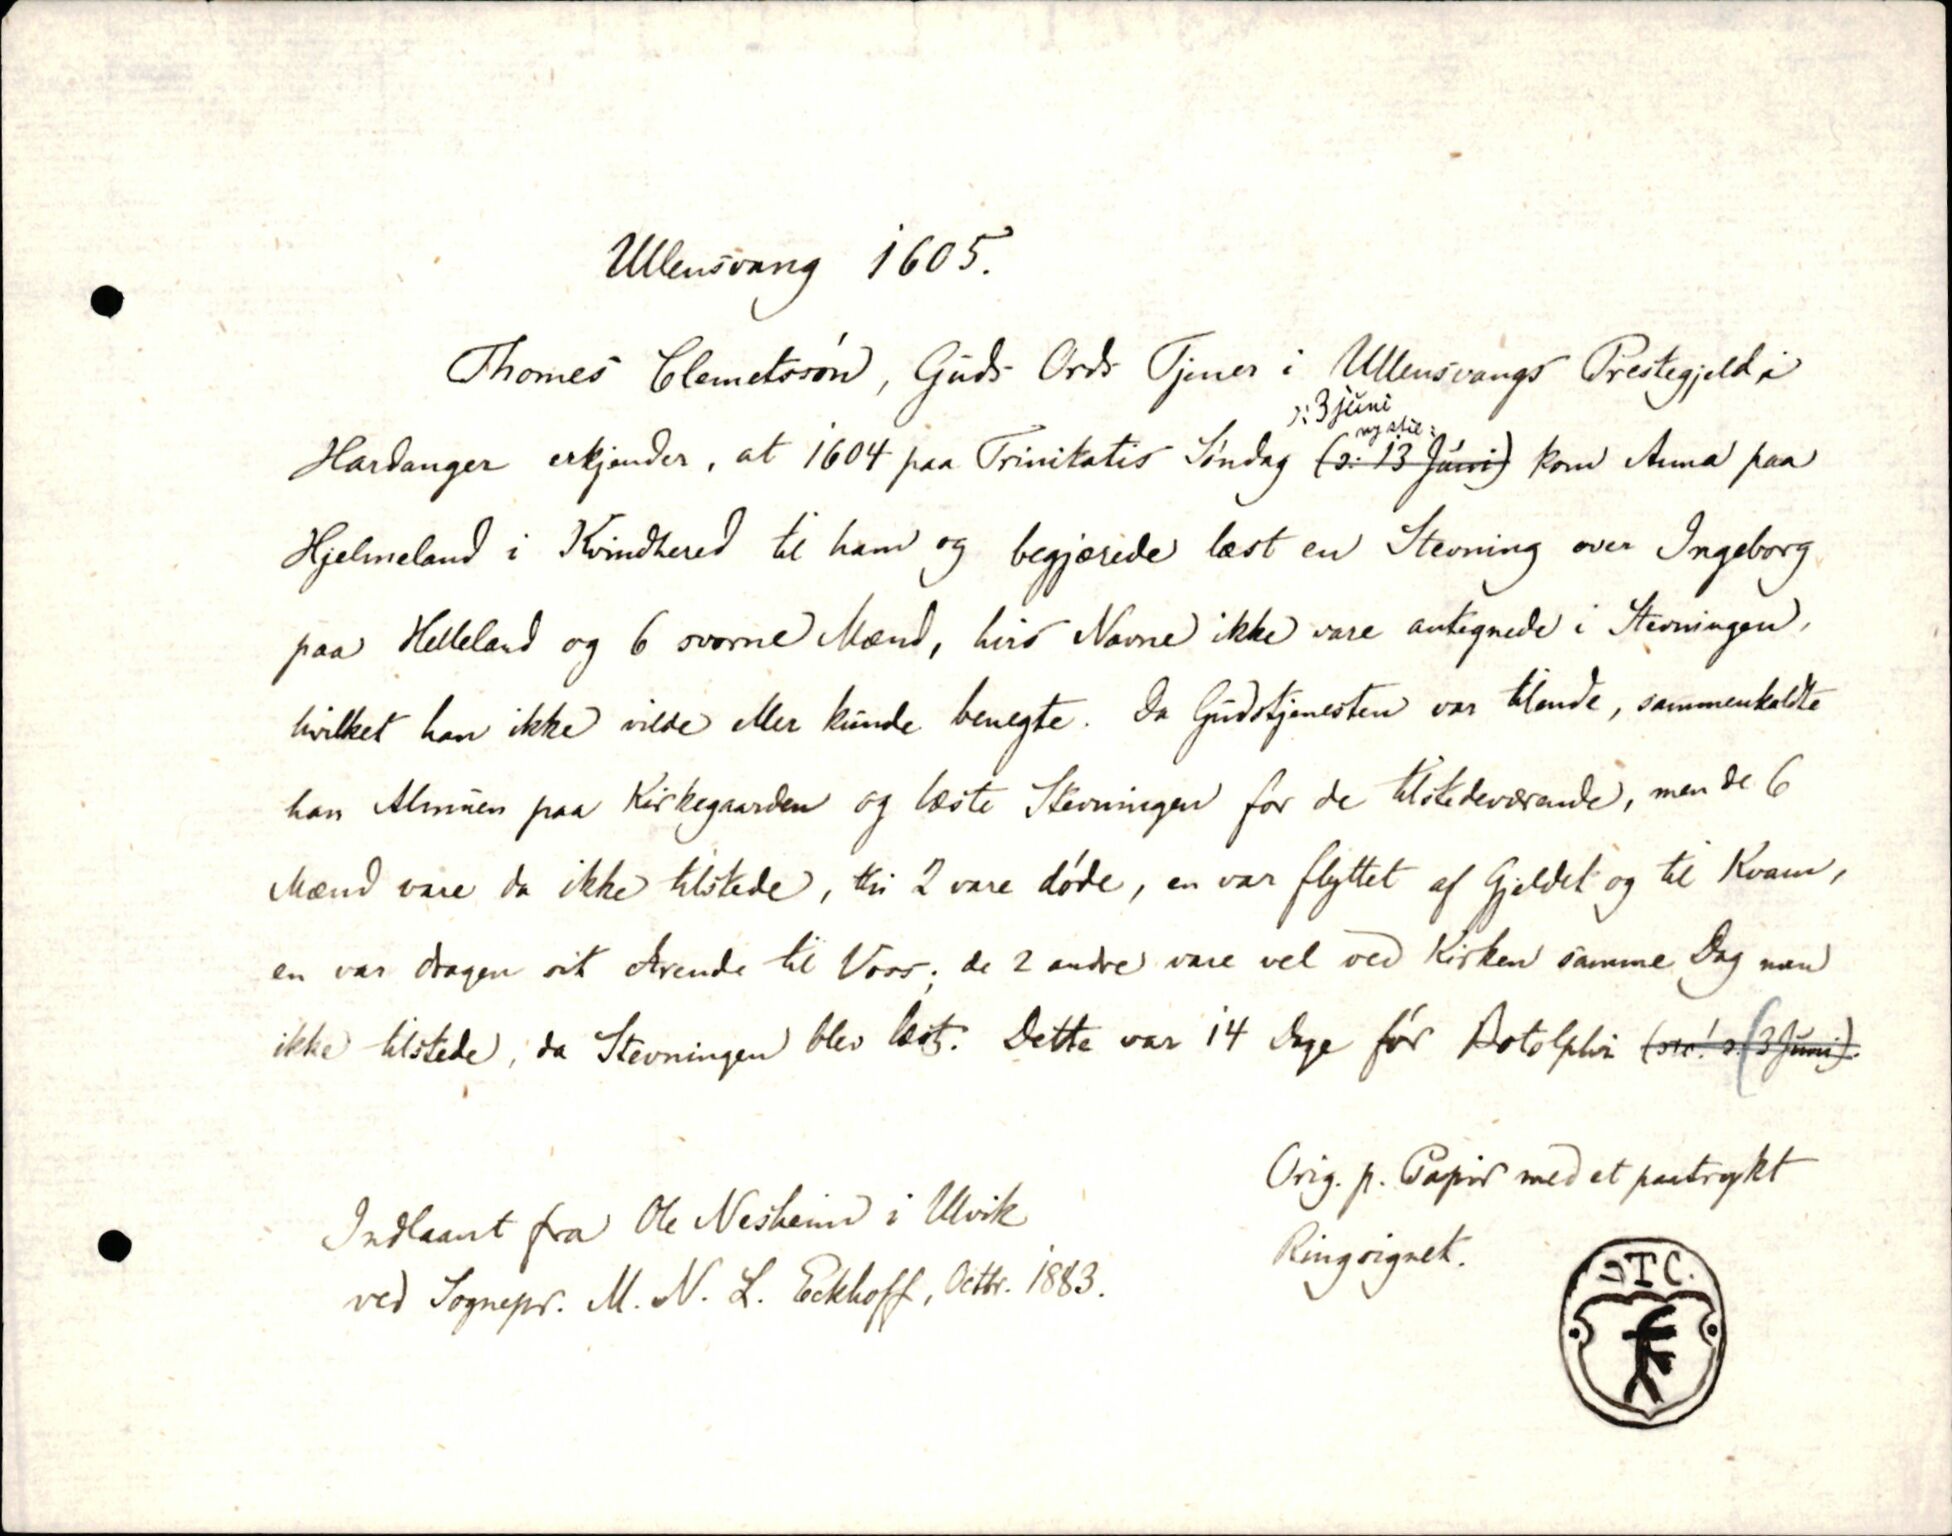 Ullensvang 1605.
Thomes Clemetssøn, Guds Ords Tjener i Ullensvangs Prestegjeld i
ɔ: 3 juni
ny stil:
Hardanger erkjender, at 1604 paa Trinitatis Søndag (ɔ: 13 Juni) kom Anna paa
Hjelmeland i Kvindhered til ham og begjærede læst en Stevning over Ingeborg
paa Helleland og 6 svorne Mænd, hvis Navne ikke vare antegnede i Stevningen,
hvilket han ikke vilde eller kunde benegte. Da Gudstjenesten var tilende, sammenkaldte
han Almuen paa Kirkegaarden og læste Stevningen for de tilstedeværende, men de 6
Mænd vare da ikke tilstede, thi 2 vare døde, en var flyttet af Gjeldet og til Kvam,
en var dragen sit Ærende til Voss; de 2 andre vare vel ved Kirken samme Dag men
ikke tilstede, da Stevningen blev læst. Dette var 14 Dage før Botolphi (sic! ɔ: (3 Juni).
Orig. p. Papir med et paatrykt
Ringsignet.
Indlaant fra Ole Nesheim i Ulvik
ved Sognepr. M. N. L. Eckhoff, Octbr. 1883.
TC.